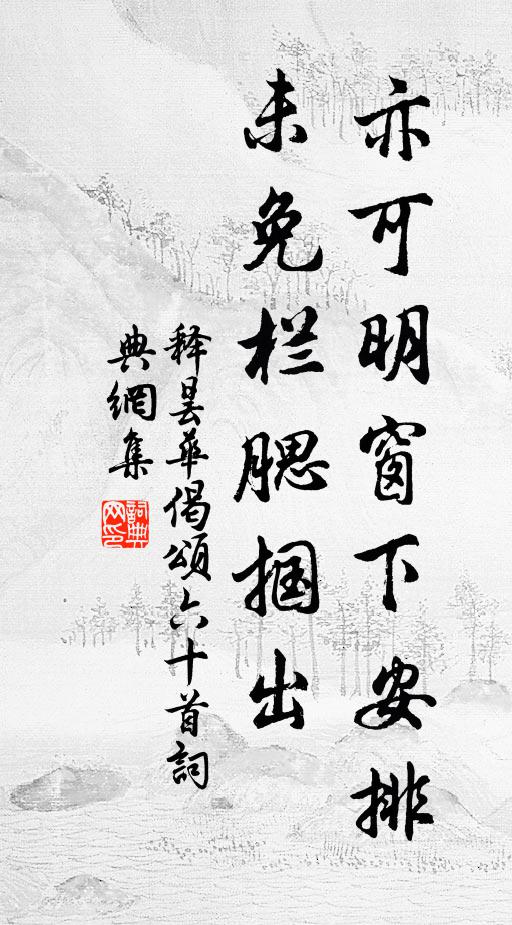 亦可明窗下安排
未免栏腮掴出
释昙华偈颂六十首詞
典網集
詞典网印